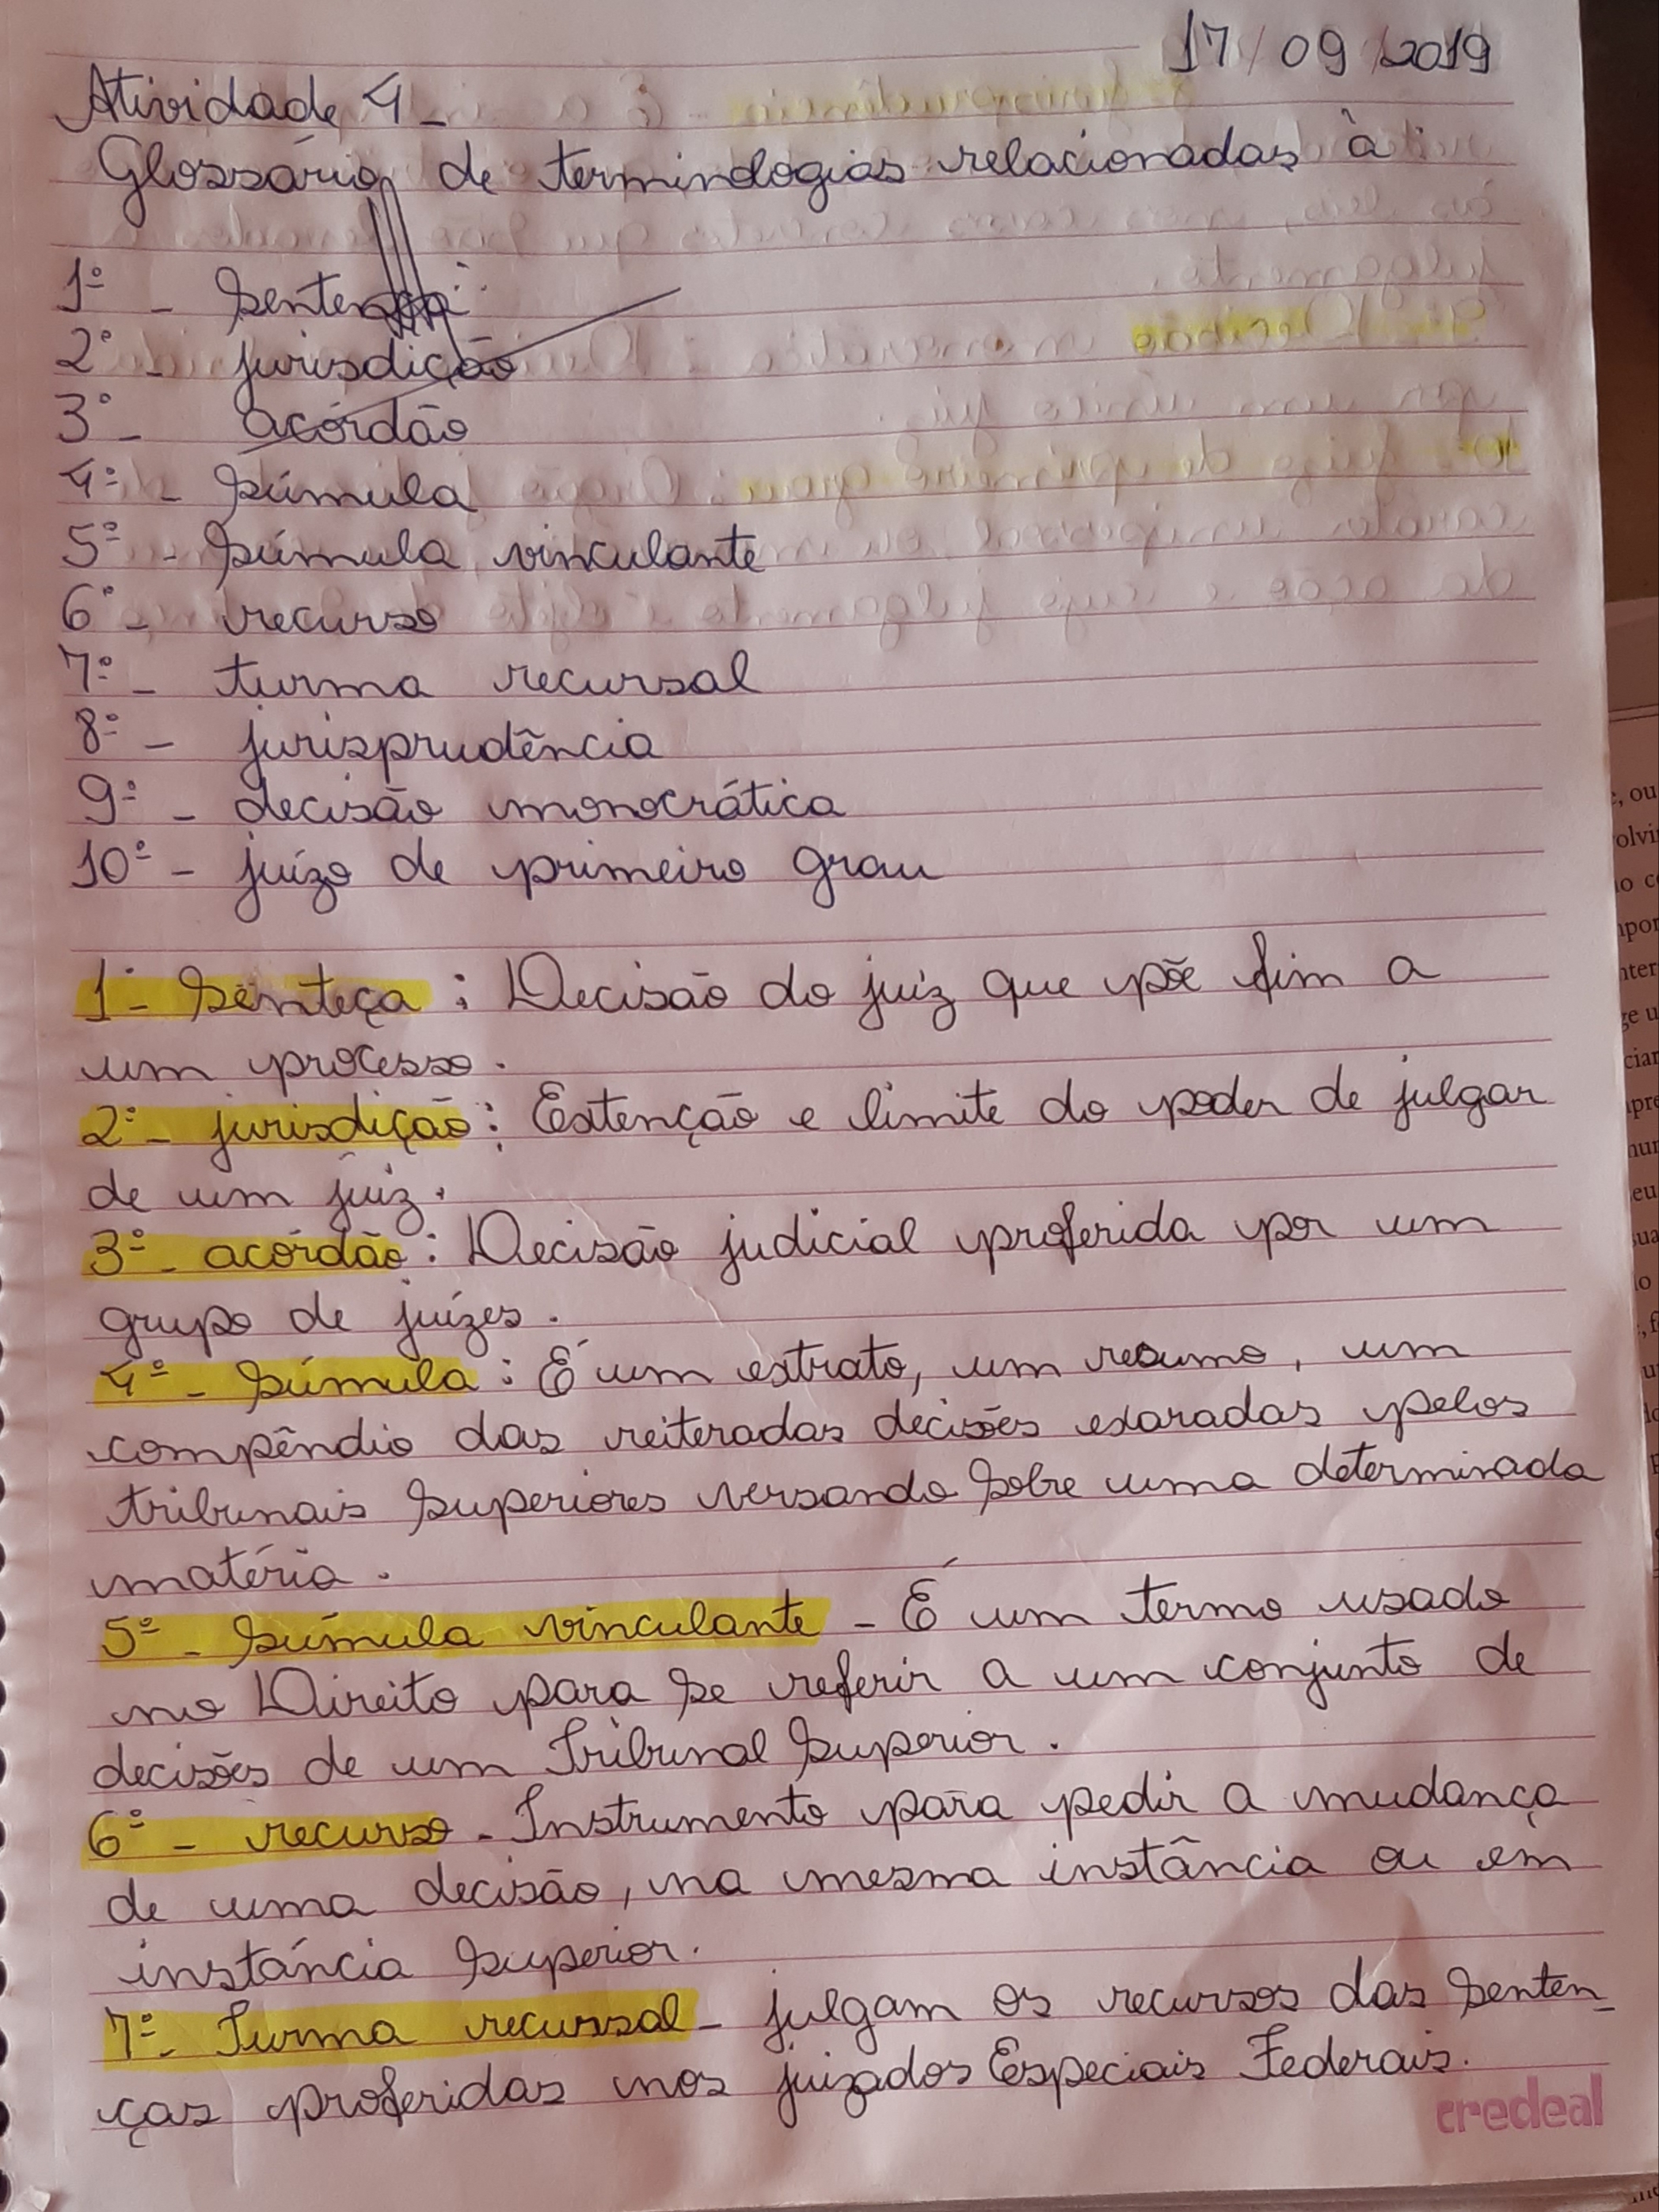 17/09/2019
Atividade 4-
Glossário de terminologias relacionadas à
1º - Sentença
2º - jurisdição
3º - acórdão
4º - Súmula
5º - Súmula vinculante
6º - recurso
7º - turma recursal
8º - jurisprudência
9º - decisão monocrática
10º - juízo de primeiro grau
1º- Senteça : Decisão do juiz que põe fim a
um processo.
2º- jurisdição : Extenção e limite do poder de julgar
de um juiz.
3º- acórdão : Decisão judicial proferida por um
grupo de juízes.
4º- Súmula : É um extrato, um resumo, um
compêndio das reiteradas decisões exaradas pelos
tribunais Superiores versando Sobre uma determinada
matéria.
5º - Súmula vinculante - É um termo usado
no Direito para Se referir a um conjunto de
decisões de um Tribunal Superior.
6º - recurso - Instrumento para pedir a mudança
de uma decisão, na mesma instância ou em
instância Superior.
7º- Turma recursal - julgam os recursos das Senten-
ças proferidas nos juizados Especiais Federais.
credeal